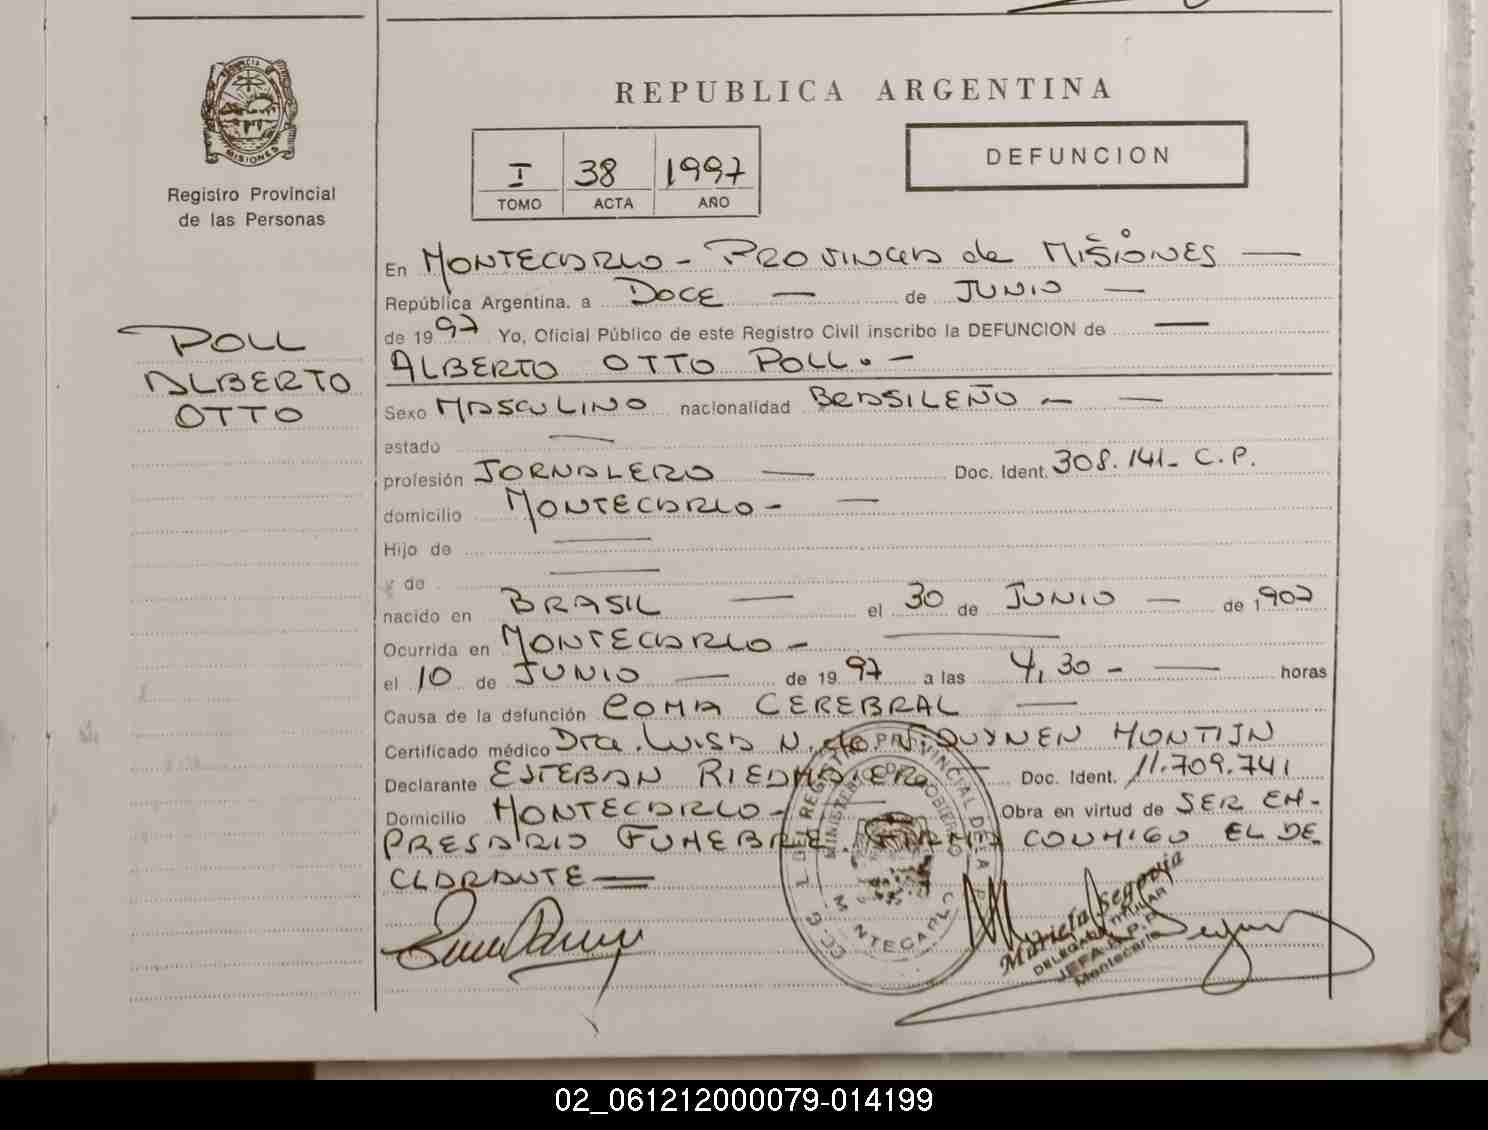 REPUBLICA ARGENTINA
MISIONES
Registro Provincial
de las Personas
I 38 1997
TOMO ACTA AÑO
DEFUNCION
POLL
ALBERTO
OTTO
En MONTECARLO - PROVINCIA de MISIONES —
República Argentina, a DOCE — de JUNIO —
de 1997 Yo, Oficial Público de este Registro Civil inscribo la DEFUNCION de —
ALBERTO OTTO POLL. -
Sexo MASCULINO nacionalidad BRASILEÑO - —
estado —
profesión JORNALERO — Doc. Ident. 308.141- C.P.
domicilio MONTECARLO - —
Hijo de —
y de —
nacido en BRASIL — el 30 de JUNIO — de 1907
Ocurrida en MONTECARLO - —
el 10 de JUNIO — de 1997 a las 4,30 - — horas
Causa de la defunción COMA CEREBRAL —
Certificado médico Dra. LUISA N. de MONTIJN
Declarante ESTEBAN RIEDMAIER Doc. Ident. 11.709.741
Domicilio MONTECARLO - — Obra en virtud de SER EM-
PRESARIO FUNEBRE FIRMA CONMIGO EL DE
CLARANTE =
MONTECARLO
Mariela Segovia
DELEGADA TITULAR
JEFA R.P.P.
Montecarlo
02_061212000079-014199